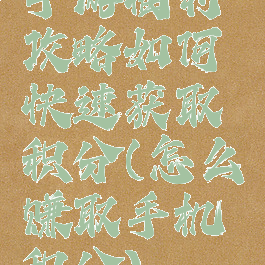 攻略如何
快速获取
积分(怎么
赚取手机
积分)